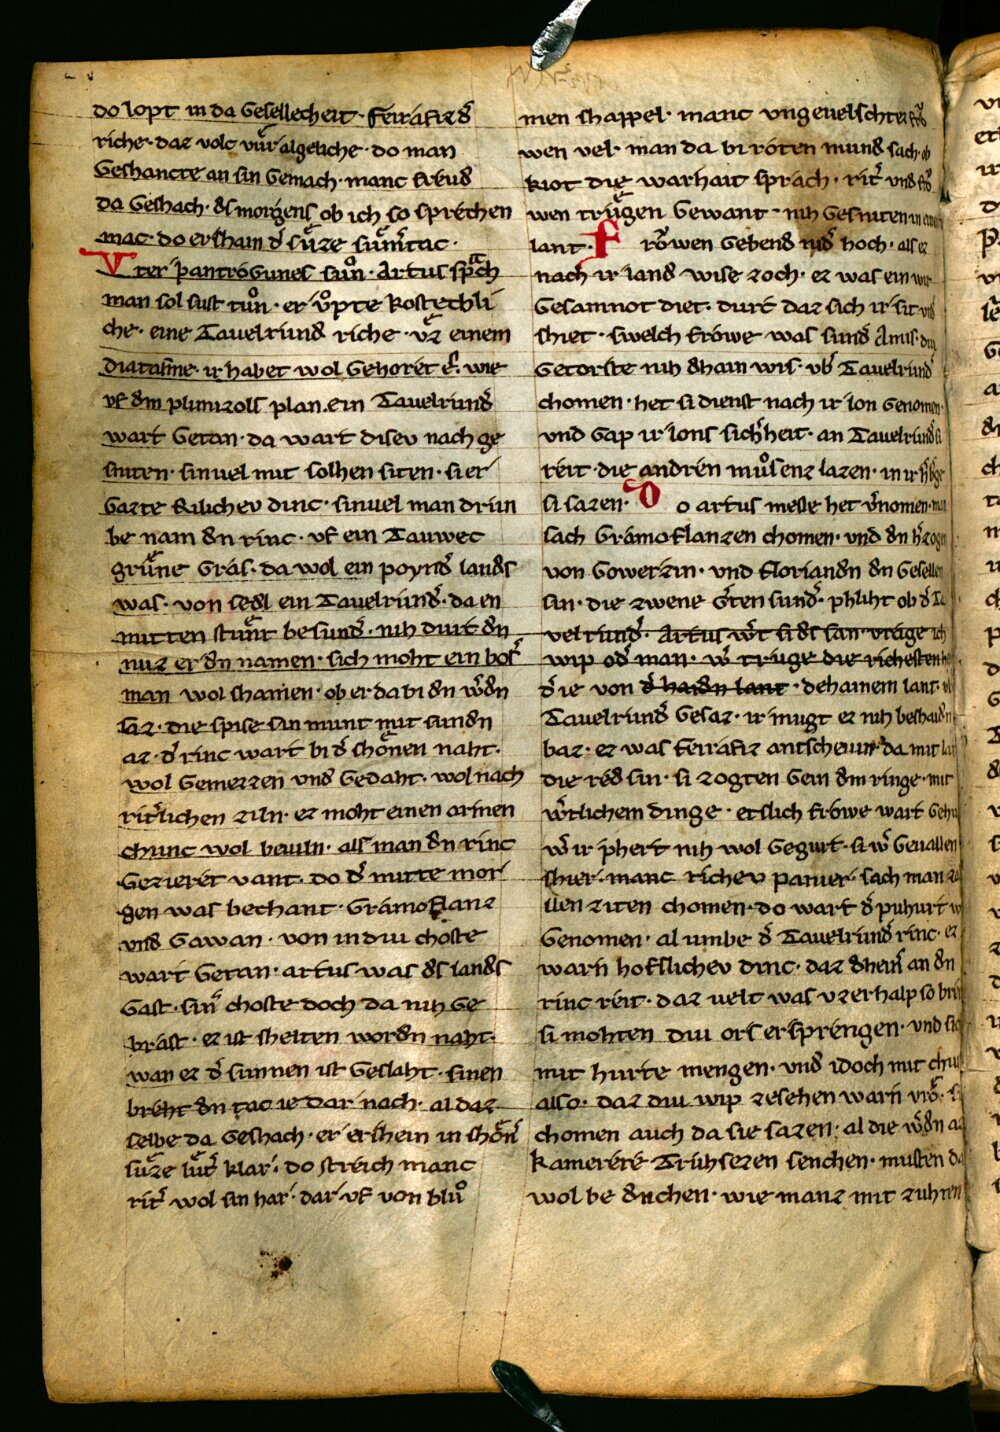 do lopt in da Gesellecheit · feirafiz ds̄
riche · daz volc vuͤr algeliche · do man
Geshancte an sin Gemach · manc freud
da Geshach · ds morgens ob ich so sprechen
mac · do ershain d̄ suͤze suͤmtac ·
Vter pantrogunes suͦn · Artus sprach
man sol sust tuͦn · er vͦpte kostechli
che · eine Tauelrund riche · vz einem
diatasme · ir habet wol Gehoret e · wie
vf dm plimizoll plan · ein Tauelrund̄
wart Getan · da wart disev nach ge
sniten · sinuel mit solhen siten · si er
Gazte Rilichev dinc · sinuel man drum
be nam dn rinc · vf ein Tauwec
gruͤne Gras · da wol ein poynd̄ lands
was · von sedl ein Tauelrund̄ · da en
mitten stuͤnt besund̄ · nih durc dn
nuz er dn namen · sich moht ein bos̄
man wol shamen · ob er da bi dn w̄dn
saz · die spise sin munt mit sundn
az · d̄ rinc wart bi d̄ shoͤnen naht ·
wol Gemezzen und Gedaht · wol nach
rit̄lichen ziln · ez moht einen armen
chunc wol beuiln · als man dn rinc
Gezieret vant · do d̄ mitte mor
gen was bechant · Gramoflanz
und Gawan · von in diu choste
wart Getan · artus was ds lands
Gast · sin̄ choste doch da nih Ge
brast · ez ist shelten wordn naht ·
wan ez d̄ sunnen ist Geslaht · sinen
breht dn tac ie dar nach · al daz
selbe da Geshach · er ershein in shoͤn̄
suͤze luͤt̄ klar · do streich manc
rit̄ wol sin har · dar vf von bluͦ
men shappel · manc ungeuelschtez
wen vel · man da bi roten mund sach · ob
kiot die warhait sprach · rit̄ und
wen truͤgen Gewant · nih Gesniten in
lant · Froͮwen Gebend nid̄ hoch · als ez
nach ir land wise zoch · ez was ein wit
Gesamnot diet · durc daz sich ir sit und
shiet · swelch froͮwe was sund Amis · diu
Getorste nih dhain wis · vb̄ Tauelrund̄
chomen · het si dienst nach ir lon Genomen ·
und Gap ir lons sich̄heit · an Tauelrund̄ si
reit · die andren muͦsenz lazen · in ir
si sazen · Do artus messe het v̄nomen · man
sach Gramoflanzen chomen · und dn h̄zogen
von Gowerzin · und floriandn dn Gesellen
sin · die zwene Ḡten sund̄ · phliht ob d̄
velrund̄ · Artus w̄t si ds san · vrage ich
wip od̄ man · w̄ truge die richesten
d̄ie von d̄ haidn lant · dehainem lant
Tauelrund̄ Gesaz · ir mugt ez nih beshaidn
baz · ez was feirafiz antschevin · da mit
die red sin · si zogten Gein dm ringe · mit
w̄rlichem dinge · etslich froͮwe wart
w̄ ir phert nih wol Gegurt · si w̄ Geuallen
shier · manc richev panier · sach man
llen ziten chomen · do wart d̄ puhurt
Genomen · al umbe d̄ Tauelrund̄ rinc · ez
warn hofslichev dinc · daz dhein̄ an dn
rinc reit · daz uelt was vzerhalp so breit
si mohten diu ors ersprengen · und sich
mit hurte mengen · und idoch mit
also · daz diu wip zesehen warn vro ·
chomen auch da sie sazen · al die w̄dn
kamerere Truhsezen senchen · musten
wol be dnchen · wie manz mit zuhten